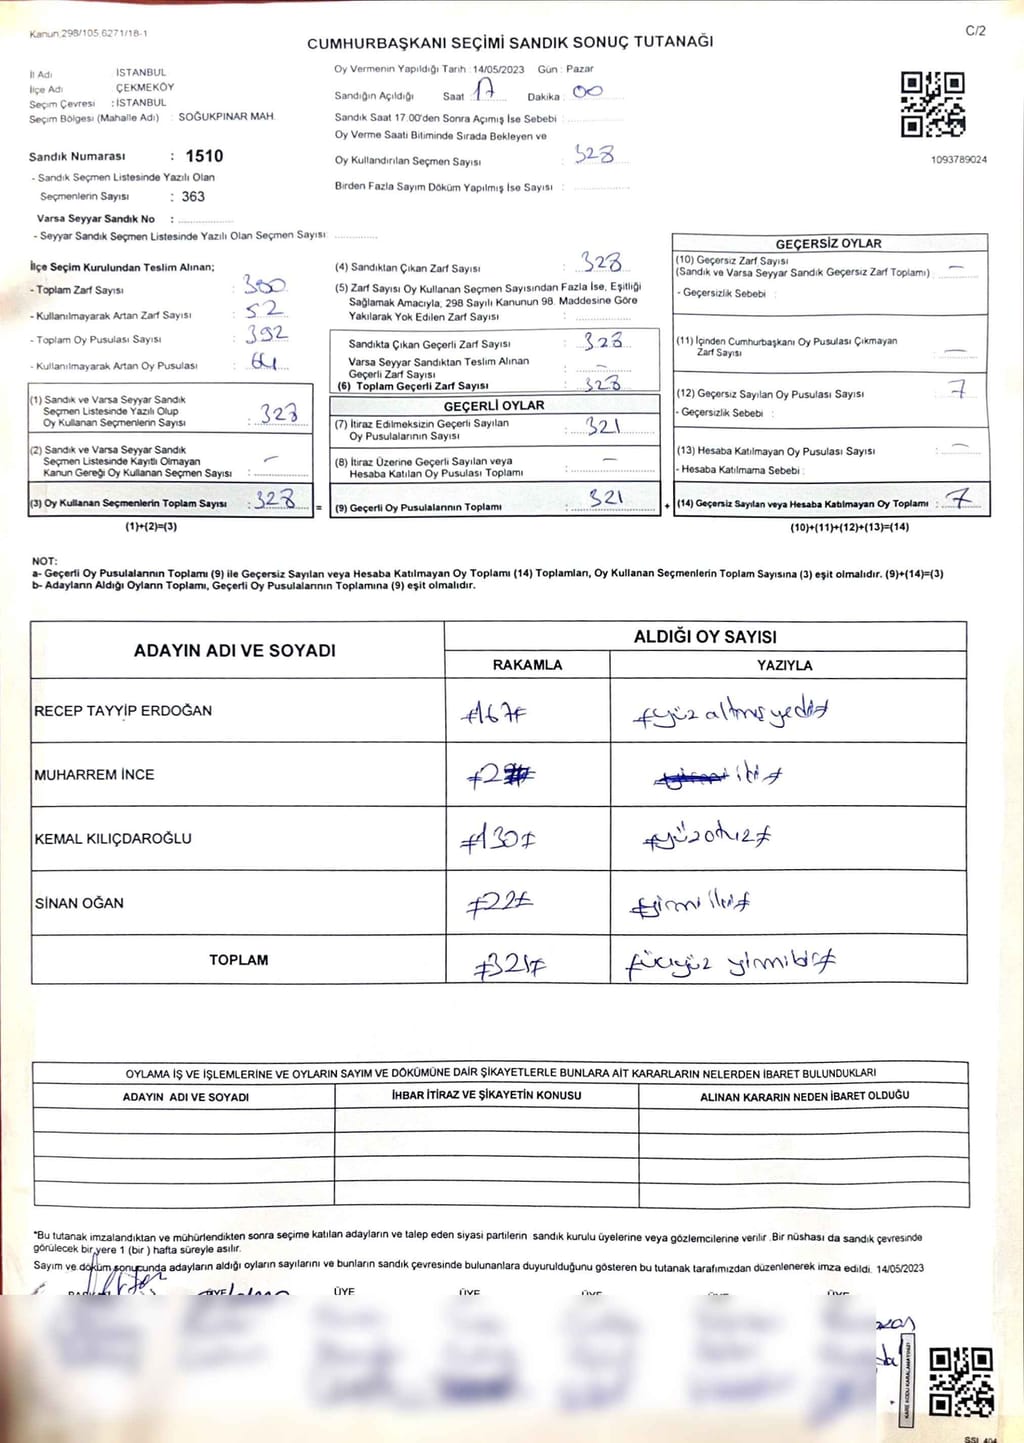 Kanun.298/105.6271/18-1
C/2
CUMHURBAŞKANI SEÇİMİ SANDIK SONUÇ TUTANAĞI
İl Adı İSTANBUL
İlçe Adı ÇEKMEKÖY
Seçim Çevresi : İSTANBUL
Seçim Bölgesi (Mahalle Adı) : SOĞUKPINAR MAH.
Sandık Numarası : 1510
- Sandık Seçmen Listesinde Yazılı Olan
Seçmenlerin Sayısı : 363
Varsa Seyyar Sandık No :
- Seyyar Sandık Seçmen Listesinde Yazılı Olan Seçmen Sayısı:
Oy Vermenin Yapıldığı Tarih : 14/05/2023 Gün : Pazar
Sandığın Açıldığı Saat 17 Dakika : 00
Sandık Saat 17.00'den Sonra Açımış İse Sebebi :
Oy Verme Saati Bitiminde Sırada Bekleyen ve
Oy Kullandırılan Seçmen Sayısı : 328
Birden Fazla Sayım Döküm Yapılmış İse Sayısı :
1093789024
İlçe Seçim Kurulundan Teslim Alınan;
- Toplam Zarf Sayısı : 380
- Kullanılmayarak Artan Zarf Sayısı : 52
- Toplam Oy Pusulası Sayısı : 392
- Kullanılmayarak Artan Oy Pusulası : 64
(1) Sandık ve Varsa Seyyar Sandık
Seçmen Listesinde Yazılı Olup
Oy Kullanan Seçmenlerin Sayısı : 328
(2) Sandık ve Varsa Seyyar Sandık
Seçmen Listesinde Kayıtlı Olmayan
Kanun Gereği Oy Kullanan Seçmen Sayısı : -
(3) Oy Kullanan Seçmenlerin Toplam Sayısı : 328
(1)+(2)=(3)
=
(4) Sandıktan Çıkan Zarf Sayısı : 328
(5) Zarf Sayısı Oy Kullanan Seçmen Sayısından Fazla İse, Eşitliği
Sağlamak Amacıyla, 298 Sayılı Kanunun 98. Maddesine Göre
Yakılarak Yok Edilen Zarf Sayısı :
Sandıkta Çıkan Geçerli Zarf Sayısı : 328
Varsa Seyyar Sandıktan Teslim Alınan
Geçerli Zarf Sayısı : -
(6) Toplam Geçerli Zarf Sayısı : 328
GEÇERLİ OYLAR
(7) İtiraz Edilmeksizin Geçerli Sayılan
Oy Pusulalarının Sayısı : 321
(8) İtiraz Üzerine Geçerli Sayılan veya
Hesaba Katılan Oy Pusulası Toplamı : -
(9) Geçerli Oy Pusulalarının Toplamı : 321
+
GEÇERSİZ OYLAR
(10) Geçersiz Zarf Sayısı
(Sandık ve Varsa Seyyar Sandık Geçersiz Zarf Toplamı) : -
- Geçersizlik Sebebi :
(11) İçinden Cumhurbaşkanı Oy Pusulası Çıkmayan
Zarf Sayısı : -
(12) Geçersiz Sayılan Oy Pusulası Sayısı : 7
- Geçersizlik Sebebi :
(13) Hesaba Katılmayan Oy Pusulası Sayısı : -
- Hesaba Katılmama Sebebi :
(14) Geçersiz Sayılan veya Hesaba Katılmayan Oy Toplamı : 7
(10)+(11)+(12)+(13)=(14)
NOT:
a- Geçerli Oy Pusulalarının Toplamı (9) ile Geçersiz Sayılan veya Hesaba Katılmayan Oy Toplamı (14) Toplamları, Oy Kullanan Seçmenlerin Toplam Sayısına (3) eşit olmalıdır. (9)+(14)=(3)
b- Adayların Aldığı Oyların Toplamı, Geçerli Oy Pusulalarının Toplamına (9) eşit olmalıdır.
ADAYIN ADI VE SOYADI
ALDIĞI OY SAYISI
RAKAMLA YAZIYLA
RECEP TAYYİP ERDOĞAN #167# #yüz altmış yedi#
MUHARREM İNCE #2# iki#
KEMAL KILIÇDAROĞLU #130# #yüz otuz#
SİNAN OĞAN #22# #yirmi iki#
TOPLAM #321# #üçyüz yirmibir#
OYLAMA İŞ VE İŞLEMLERİNE VE OYLARIN SAYIM VE DÖKÜMÜNE DAİR ŞİKAYETLERLE BUNLARA AİT KARARLARIN NELERDEN İBARET BULUNDUKLARI
ADAYIN ADI VE SOYADI İHBAR İTİRAZ VE ŞİKAYETİN KONUSU ALINAN KARARIN NEDEN İBARET OLDUĞU
*Bu tutanak imzalandıktan ve mühürlendikten sonra seçime katılan adayların ve talep eden siyasi partilerin sandık kurulu üyelerine veya gözlemcilerine verilir. Bir nüshası da sandık çevresinde
görülecek bir yere 1 (bir ) hafta süreyle asılır.
Sayım ve döküm sonucunda adayların aldığı oyların sayılarını ve bunların sandık çevresinde bulunanlara duyurulduğunu gösteren bu tutanak tarafımızdan düzenlenerek imza edildi. 14/05/2023
ÜYE ÜYE ÜYE ÜYE ÜYE ÜYE
KARE KODU KARALAMAYINIZ!
SSI 404